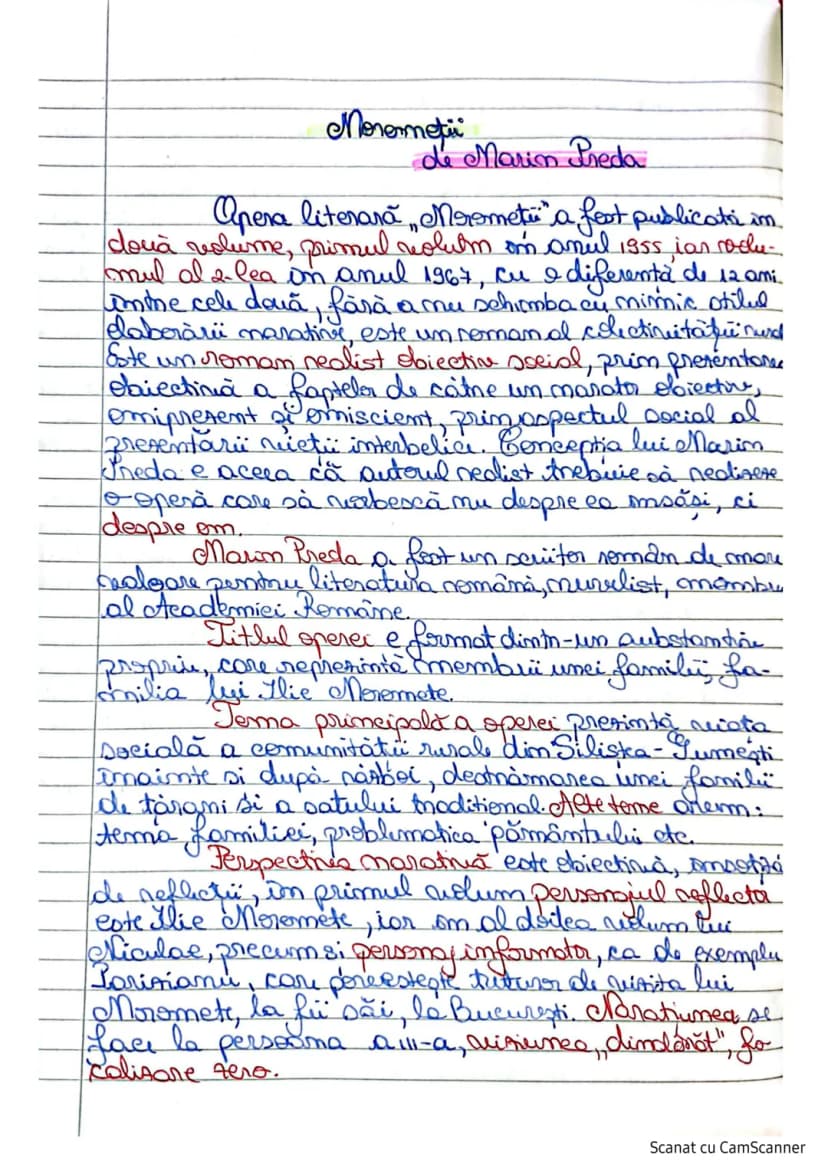 Moromeții
de Marin Preda
Opera literară „Moromeții" a fost publicată în
două volume, primul volum în anul 1955, iar volu-
mul al 2-lea în anul 1967, cu o diferență de 12 ani
între cele două, fără a nu schimba cu nimic stilul
elaborării narative, este un roman al colectivității rurale
Este un roman realist obiectiv social, prin prezentarea
obiectivă a faptelor de către un narator obiectiv,
omniprezent și omniscient, prin aspectul social al
prezentării vieții interbelice. Concepția lui Marin
Preda e aceea că autorul realist trebuie să realizeze
o operă care să vorbescă nu despre ea însăși, ci
despre om.
Marin Preda a fost un scriitor român de mare
valoare pentru literatura română, nuvelist, membru
al Academiei Române.
Titlul operei e format dintr-un substantiv
propriu, care reprezintă membrii unei familii, fa-
milia lui Ilie Moromete.
Tema principală a operei prezintă viața
socială a comunității rurale din Siliștea-Gumești
înainte și după război, destrămarea unei familii
de țărani și a satului tradițional. Alte teme avem:
tema familiei, problematica pământului etc.
Perspectiva narativă este obiectivă,
de reflectori, în primul volum personajul reflector
este Ilie Moromete, iar în al doilea volum lui
Niculae, precum și personaj informator, ca de exemplu
Parizianu, care povestește tuturor de vizita lui
Moromete, la fii săi, la București. Narațiunea se
face la persoana a III-a, viziunea „dindărăt", fo-
calizare zero.
Scanat cu CamScanner